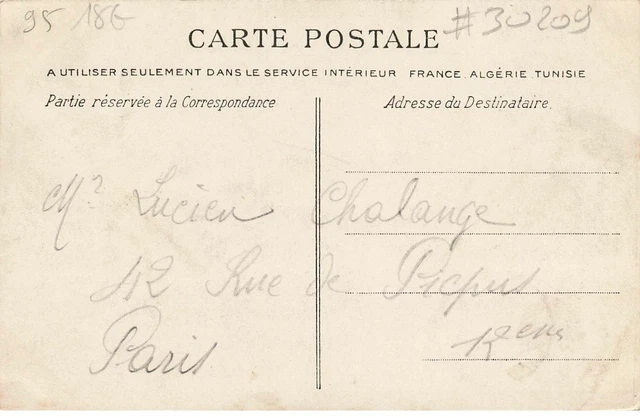 95 186
#30209
CARTE POSTALE
A UTILISER SEULEMENT DANS LE SERVICE INTÉRIEUR FRANCE. ALGÉRIE. TUNISIE
Partie réservée à la Correspondance
Adresse du Destinataire.
Mr Lucien Chalange
42 Rue de Picpus
12em
Paris